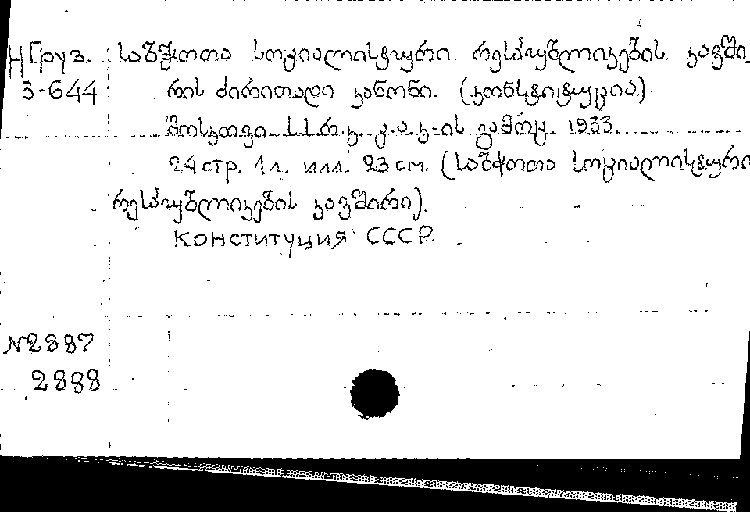 НГруз. საბჭოთა სოციალისტური რესპუბლიკების კავში_
3-644 რის ძირითადი კანონი. (კონსტიტუცია)
მოსკოვი. ს.ს.რ.კ. ც.ა.კ-ის გამოც. 1933.
24 стр. 1 л. илл. 23 см. (საბჭოთა სოციალისტური
რესპუბლიკების კავშირი).
КОНСТИТУЦИЯ СССР
N2887
2888